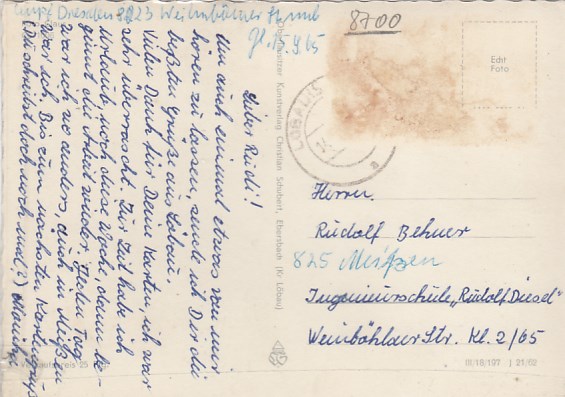 Dresden 8023 Weinböhlaer Str.
8700
Edit
Foto
LÖBAU
Lieber Rudi!
Um auch einmal etwas von mir
hören zu lassen, sende ich Dir die
süßen Grüße aus Löbau.
Vielen Dank für Deine Karten, ich war
sehr überrascht. Zur Zeit habe ich
Urlaub, noch diese Woche, dann be-
ginnt die Arbeit wieder. Jeden Tag
war ich wo anders, auch in Meißen
war ich. Bis zum nächsten Kartengruß
(Du schreibst doch noch mal?)
Oberlausitzer Kunstverlag Christian Schubert, Ebersbach (Kr. Löbau)
Herrn
Rudolf Behner
825 Meißen
Ingenieurschule „Rudolf Diesel"
Weinböhlaer Str. Kl. 2/65
III/18/197 J 21/62